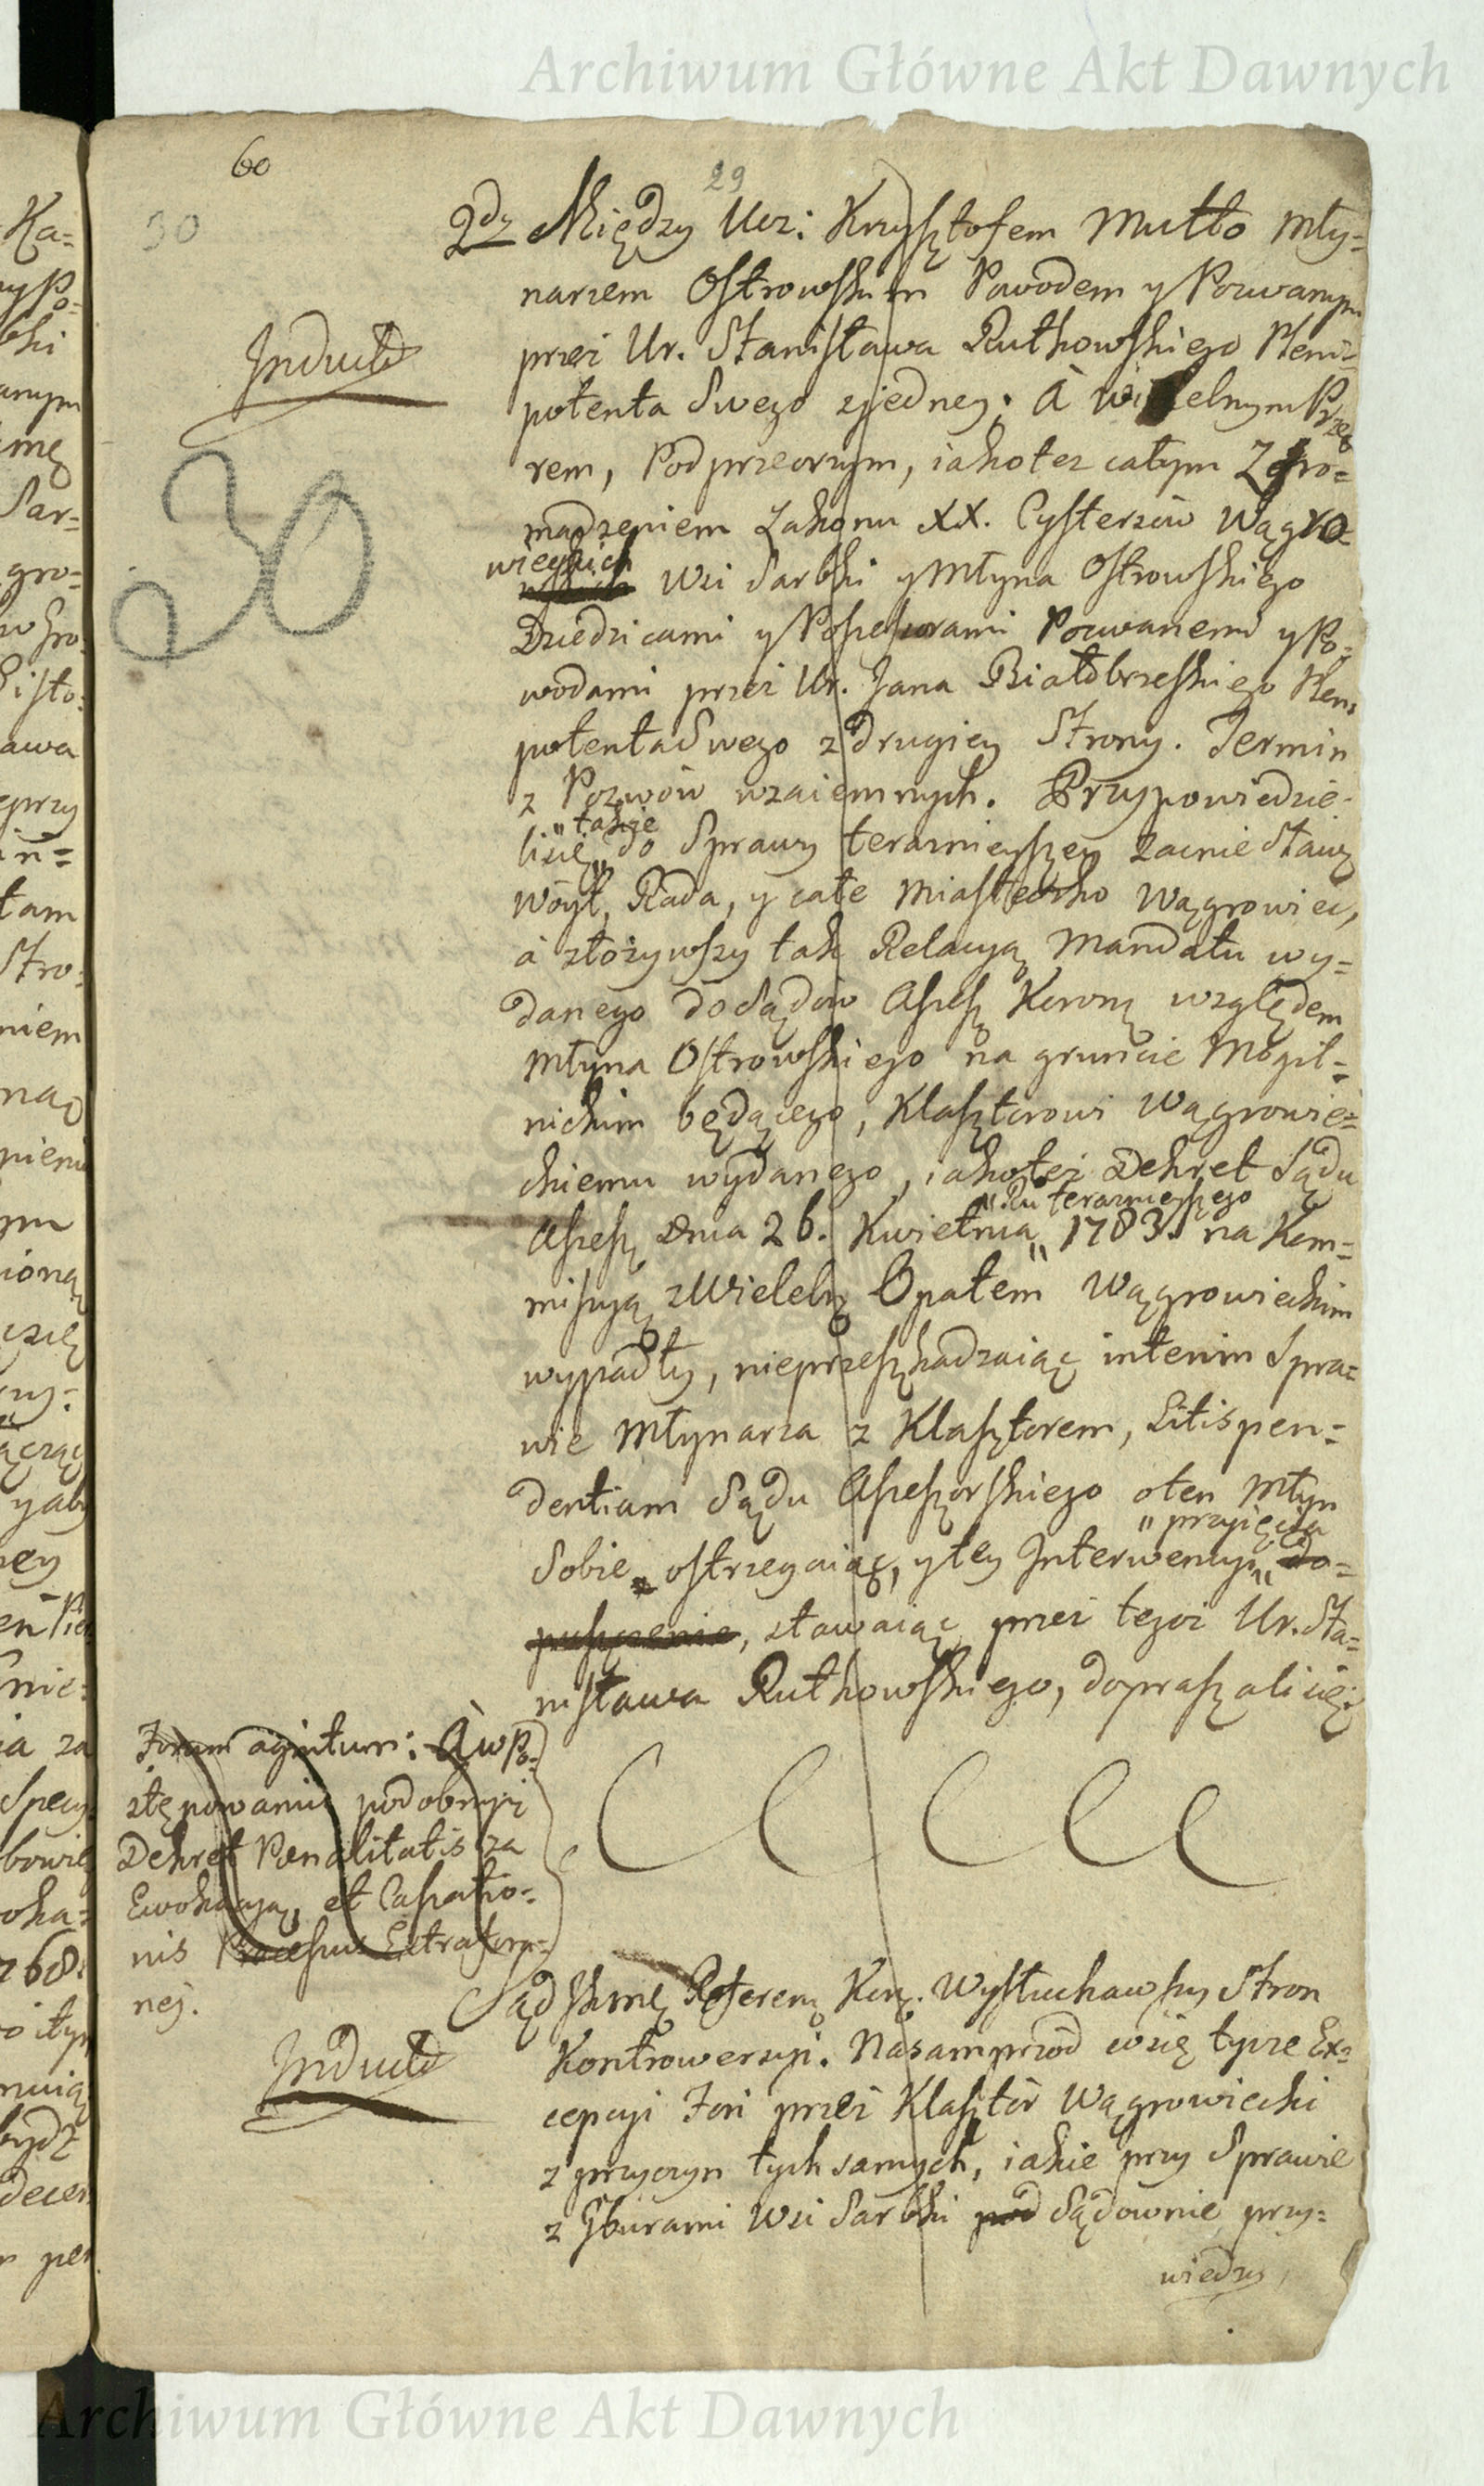 Archiwum Główne Akt Dawnych
60
29
30
2dz Między Ucz: Krzysztofem Mutto Mły=
narzem Ostrowskim Powodem y Pozwanym
Inducta
przez Ur. Stanisława Rutkowskiego Pleni=
potenta Swego zjedney; à Wielelnym Przeo
30
rem, Podprzeorzym, iakotez całym Zgro=
madzeniem Zakonu XX. Cystersów Wągro=
wieckich
Wsi Sarbki y Młyna Ostrowskiego
Dziedzicami y Possessorami Pozwanemi y Po=
wodami przez Ur. Jana Białobrzeskiego Pleni
potenta Swego z drugiey Strony. Termin
z Pozwów wzaiemnych. Przypowiedzie-
" także
lisię " do Sprawy terazniejszey Zacnie Sławę
Wóyt, Rada, y całe Miasteczko Wągrowiec,
à złożywszy tak Relacyą Mandatu wy=
danego do Sądów Assess Koronę względem
Młyna Ostrowskiego na gruncie Mogil=
nickim będącego, Klasztorowi Wągrowie=
ckiemu wydanego, iakoteż Dekret Sądu
" Ru terazniejszego
Assess Dnia 26. Kwietnia " 1783. na Kom=
missyą z Wielebę Opatem Wągrowieckim
wypadły, nieprzeszkadzaiąc interim Spra=
wie Młynarza z Klasztorem, Litispen=
dentiam Sądu Assessorskiego oten Młyn
" przyięcia
Sobie ostrzegaiąc, y tey Interwencyi " do=
puszczenie, stawaiąc przez tegoż Ur. Sta=
nisława Rutkowskiego, dopraszali się:
Forum agitur: À w Po=
stępowaniu podobnyż
Dekret Poenalitatis za
Ewokacyą, et Cassatio=
nis Processus Extraforu=
nej.
Sąd JKmę Referenę Korę. Wysłuchawszy Stron
Inducta
Kontrowersyi. Nasamprzód wsię tycze Ex=
cepcyi Fori przez Klasztór Wągrowiecki
z przyczyn tych samych, iakie przy Sprawie
z Gburami Wsi Sarbki pod Sądownie przy=
wiedzy
Archiwum Główne Akt Dawnych